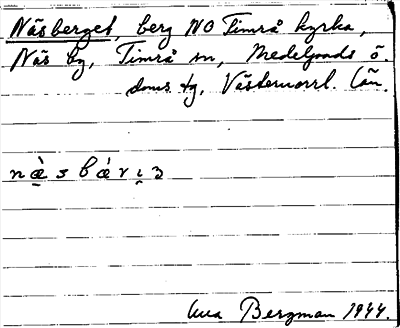 Näsberget, berg NO Timrå kyrka,
Näs by, Timrå sn, Medelpads ö.
doms tg, Västernorrl. län.
næ̀sbǽrıȝ
Ulla Bergman 1944.